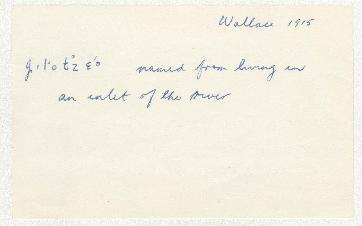 Wallace 1915
named from living in
an inlet of the river